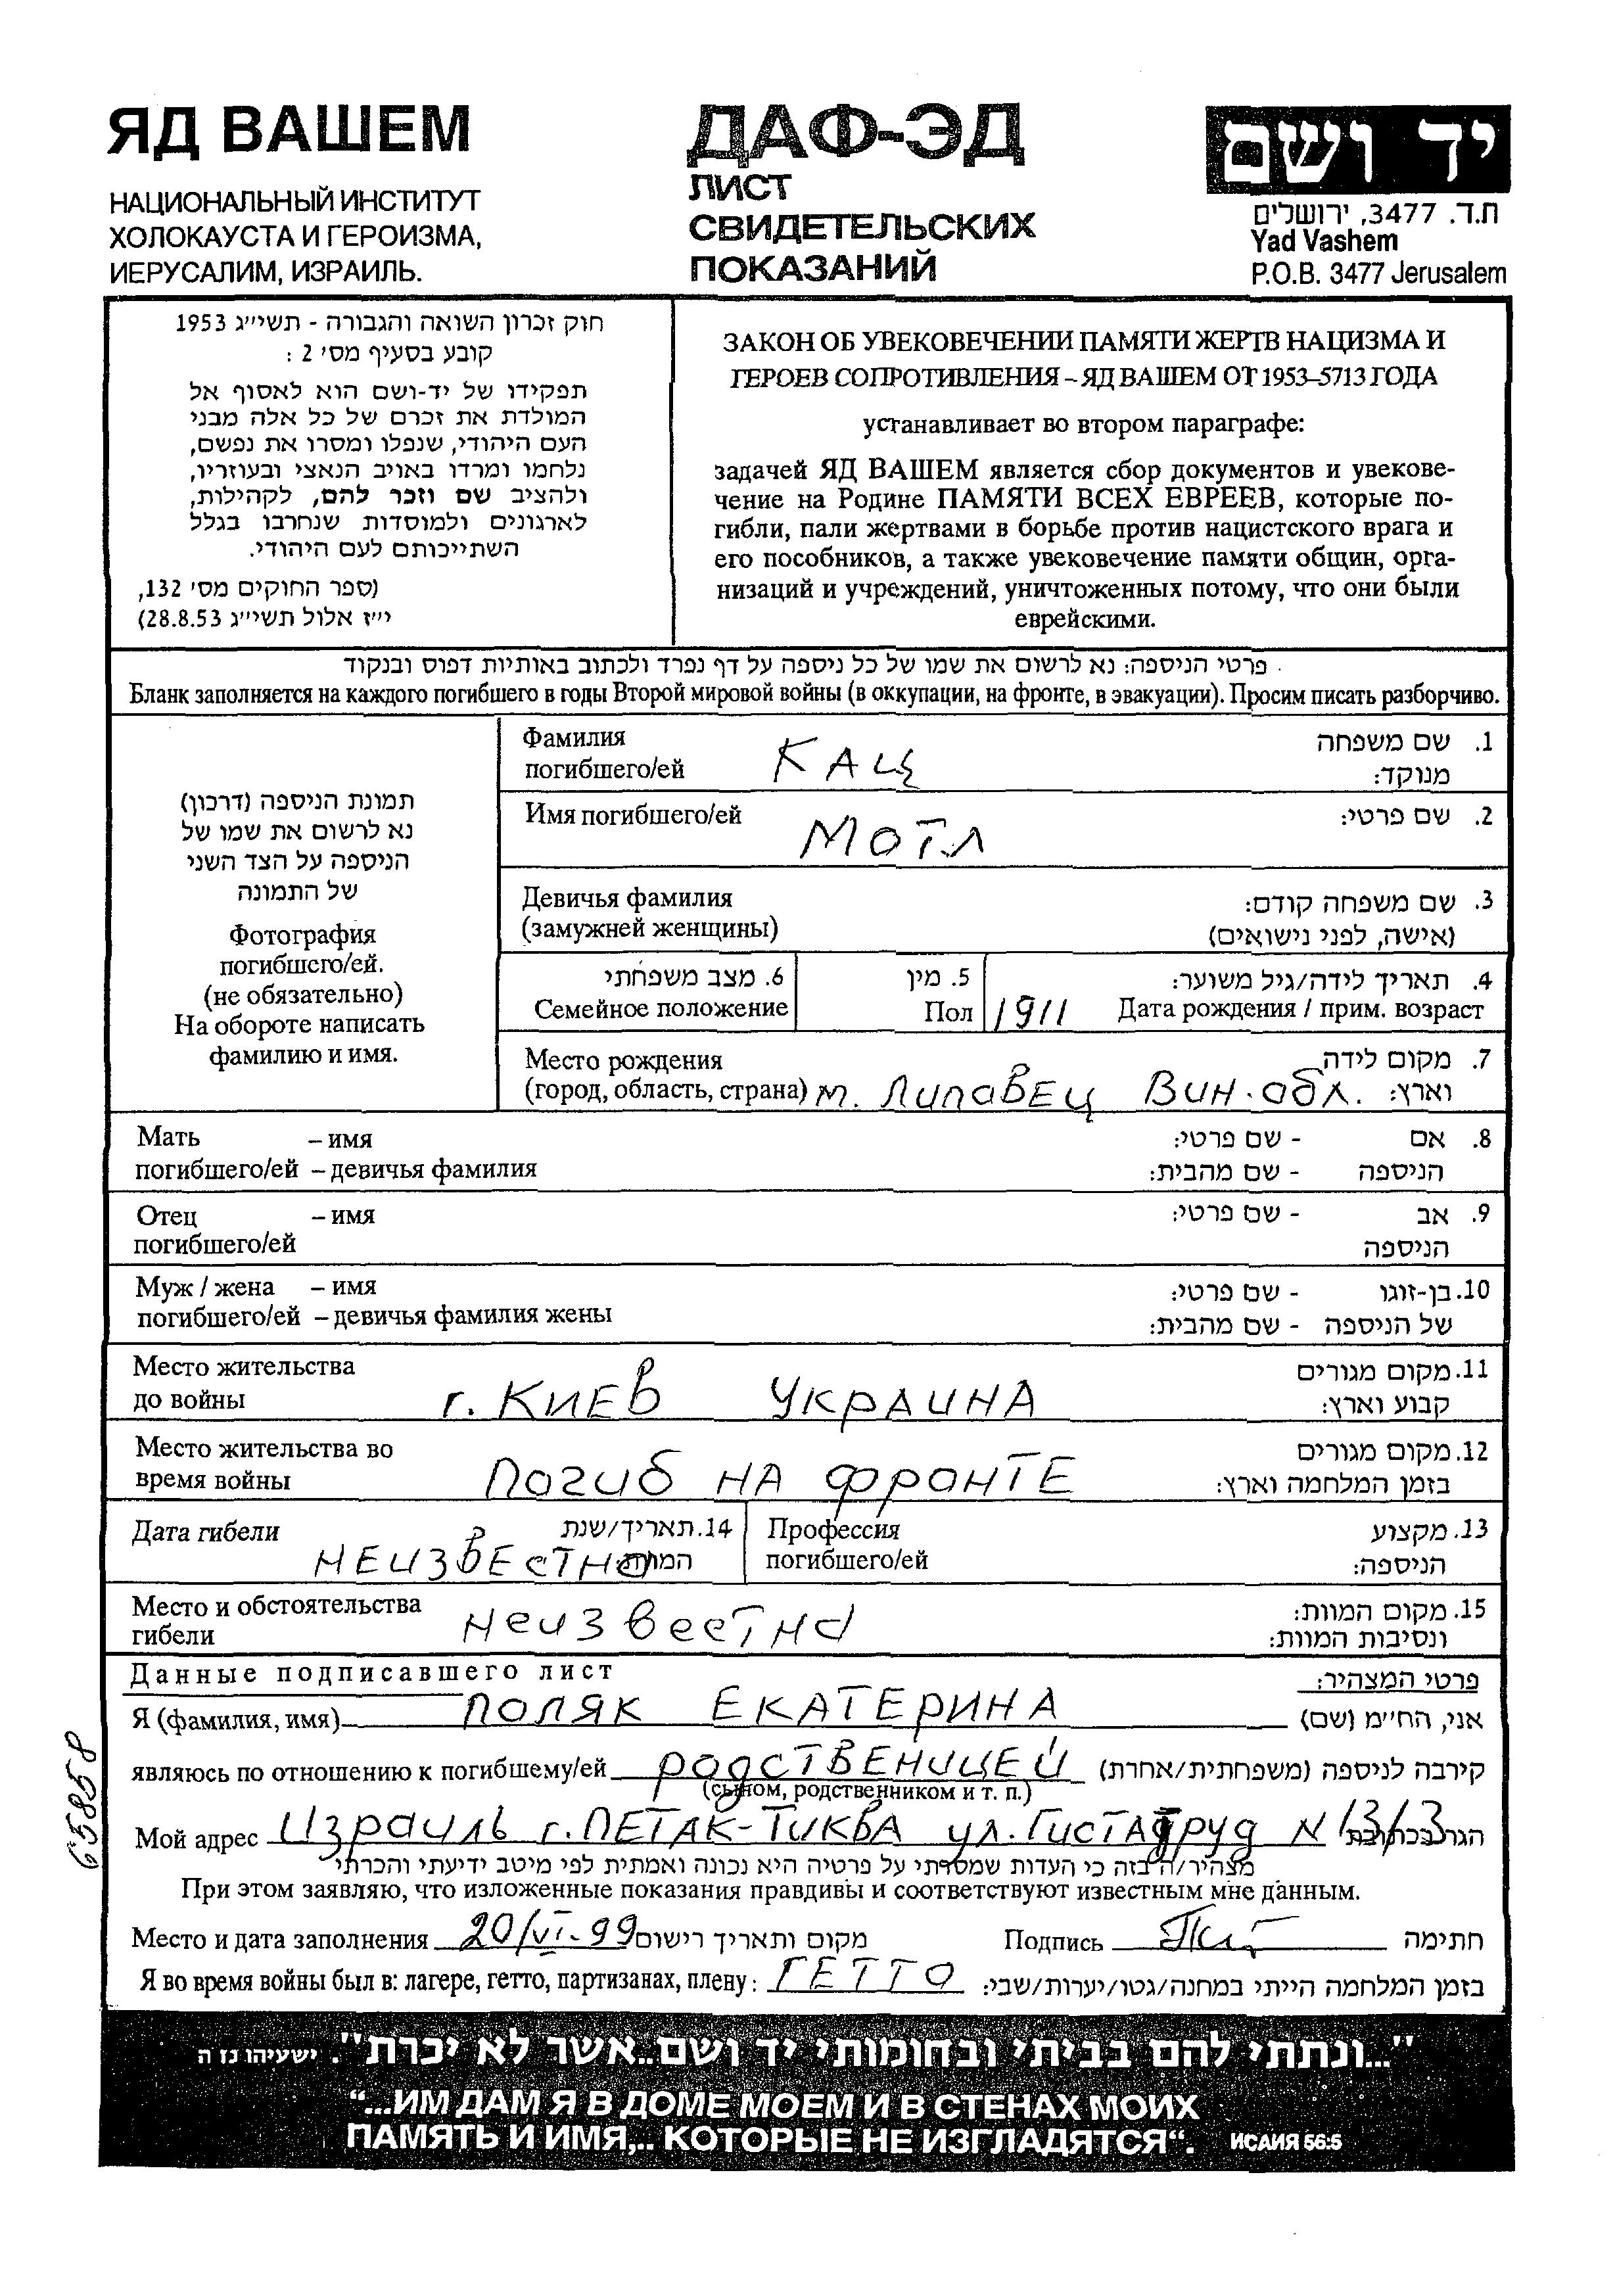 ЯД ВАШЕМ
НАЦИОНАЛЬНЫЙ ИНСТИТУТ
ХОЛОКАУСТА И ГЕРОИЗМА,
ИЕРУСАЛИМ, ИЗРАИЛЬ.
ДАФ-ЭД
ЛИСТ
СВИДЕТЕЛЬСКИХ
ПОКАЗАНИЙ
יד ושם
ת.ד. 3477, ירושלים
Yad Vashem
P.O.B. 3477 Jerusalem
חוק זכרון השואה והגבורה - תשי״ג 1953
קובע בסעיף מס׳ 2 :
תפקידו של יד-ושם הוא לאסוף אל
המולדת את זכרם של כל אלה מבני
העם היהודי, שנפלו ומסרו את נפשם,
נלחמו ומרדו באויב הנאצי ובעוזריו,
ולהציב שם וזכר להם, לקהילות,
לארגונים ולמוסדות שנחרבו בגלל
השתייכותם לעם היהודי.
(ספר החוקים מס׳ 132,
י״ז אלול תשי״ג 28.8.53)
ЗАКОН ОБ УВЕКОВЕЧЕНИИ ПАМЯТИ ЖЕРТВ НАЦИЗМА И
ГЕРОЕВ СОПРОТИВЛЕНИЯ – ЯД ВАШЕМ ОТ 1953–5713 ГОДА
устанавливает во втором параграфе:
задачей ЯД ВАШЕМ является сбор документов и увекове-
чение на Родине ПАМЯТИ ВСЕХ ЕВРЕЕВ, которые по-
гибли, пали жертвами в борьбе против нацистского врага и
его пособников, а также увековечение памяти общин, орга-
низаций и учреждений, уничтоженных потому, что они были
еврейскими.
פרטי הניספה: נא לרשום את שמו של כל ניספה על דף נפרד ולכתוב באותיות דפוס ובנקוד
Бланк заполняется на каждого погибшего в годы Второй мировой войны (в оккупации, на фронте, в эвакуации). Просим писать разборчиво.
תמונת הניספה (דרכון)
נא לרשום את שמו של
הניספה על הצד השני
של התמונה
Фотография
погибшего/ей.
(не обязательно)
На обороте написать
фамилию и имя.
Фамилия 1. שם משפחה
погибшего/ей КАЦ מנוקד:
Имя погибшего/ей МОТЛ 2. שם פרטי:
Девичья фамилия 3. שם משפחה קודם:
(замужней женщины) (אישה, לפני נישואים)
6. מצב משפחתי 5. מין 4. תאריך לידה/גיל משוער:
Семейное положение Пол 1911 Дата рождения / прим. возраст
Место рождения 7. מקום לידה
(город, область, страна) м. Липавец Вин. обл. וארץ:
Мать – имя - שם פרטי: 8. אם
погибшего/ей – девичья фамилия - שם מהבית: הניספה
Отец – имя - שם פרטי: 9. אב
погибшего/ей הניספה
Муж / жена – имя - שם פרטי: 10. בן-זוגו
погибшего/ей – девичья фамилия жены - שם מהבית: של הניספה
Место жительства 11. מקום מגורים
до войны г. КИЕВ УКРАИНА קבוע וארץ:
Место жительства во 12. מקום מגורים
время войны Погиб НА фронТЕ בזמן המלחמה וארץ:
Дата гибели 14. תאריך/שנת Профессия 13. מקצוע
НЕИЗВЕСТНО המוות: погибшего/ей הניספה:
Место и обстоятельства 15. מקום המוות:
гибели НеизвесТНО ונסיבות המוות:
Данные подписавшего лист פרטי המצהיר:
Я (фамилия, имя) ПОЛЯК ЕКАТЕРИНА אני, החי״מ (שם)
являюсь по отношению к погибшему/ей родСТВЕНИЦЕЙ קירבה לניספה (משפחתית/אחרת)
(сыном, родственником и т. п.)
Мой адрес Израиль г. ПЕТАК-ТИКВА ул. ГистаДруд N 13/3 הגר בכתובת
מצהיר/ה בזה כי העדות שמסרתי על פרטיה היא נכונה ואמתית לפי מיטב ידיעתי והכרתי
При этом заявляю, что изложенные показания правдивы и соответствуют известным мне данным.
Место и дата заполнения 20/VI-99 מקום ותאריך רישום Подпись חתימה
Я во время войны был в: лагере, гетто, партизанах, плену: ГЕТТО בזמן המלחמה הייתי במחנה/גטו/יערות/שבי:
65858
"...ונתתי להם בביתי ובחומותי יד ושם...אשר לא יכרת". ישעיהו נז ה
“...ИМ ДАМ Я В ДОМЕ МОЕМ И В СТЕНАХ МОИХ
ПАМЯТЬ И ИМЯ,.. КОТОРЫЕ НЕ ИЗГЛАДЯТСЯ“. ИСАИЯ 56:5